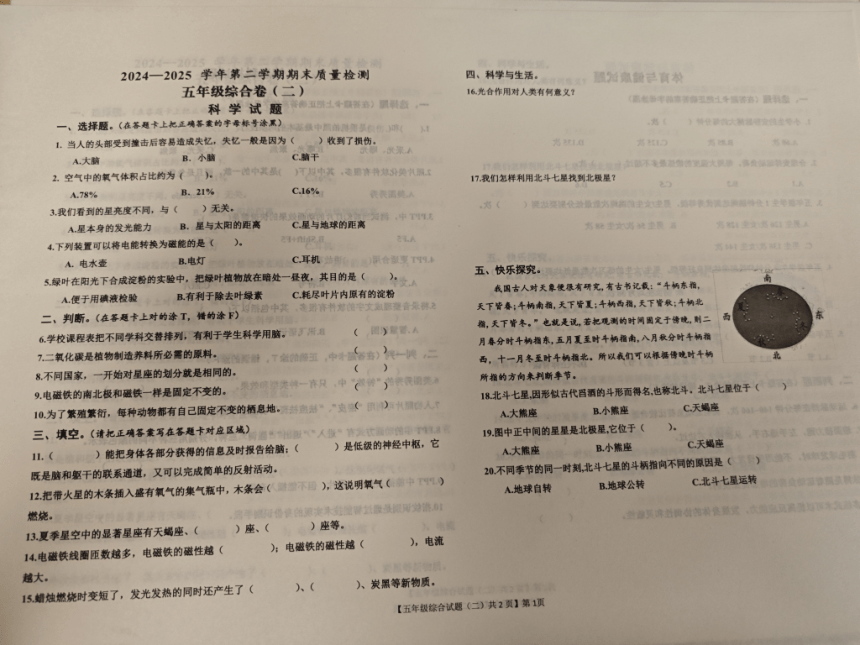 2024—2025 学年第二学期期末质量检测
五年级综合卷（二）
科 学 试 题
一、选择题。（在答题卡上把正确答案的字母标号涂黑）
1. 当人的头部受到撞击后容易造成失忆，失忆一般是因为（ ）收到了损伤。
A.大脑 B、小脑 C.脑干
2. 空气中的氧气体积占比约为（ ）。
A.78% B、21% C.16%
3.我们看到的星亮度不同，与（ ）无关。
A.星本身的发光能力 B、星与太阳的距离 C.星与地球的距离
4.下列装置可以将电能转换为磁能的是（ ）。
A. 电水壶 B.电灯 C.耳机
5.绿叶在阳光下合成淀粉的实验中，把绿叶植物放在暗处一昼夜，其目的是（ ）。
A.便于用碘液检验 B.有利于除去叶绿素 C.耗尽叶片内原有的淀粉
二、判断。（在答题卡上对的涂 T，错的涂 F）
6.学校课程表把不同学科交替排列，有利于学生科学用脑。 （ ）
7.二氧化碳是植物制造养料所必需的原料。 （ ）
8.不同国家，一开始对星座的划分就是相同的。 （ ）
9.电磁铁的南北极和磁铁一样是固定不变的。 （ ）
10.为了繁殖繁衍，每种动物都有自己固定不变的栖息地。 （ ）
三、填空。（请把正确答案写在答题卡对应区域）
11.（ ）能把身体各部分获得的信息及时报告给脑；（ ）是低级的神经中枢，它
既是脑和躯干的联系通道，又可以完成简单的反射活动。
12.把带火星的木条插入盛有氧气的集气瓶中，木条会（ ），这说明氧气（ ）
燃烧。
13.夏季星空中的显著星座有天蝎座、（ ）座、（ ）座等。
14.电磁铁线圈匝数越多，电磁铁的磁性越（ ）；电磁铁的磁性越（ ），电流
越大。
15.蜡烛燃烧时变短了，发光发热的同时还产生了（ ）、（ ）、炭黑等新物质。
四、科学与生活。
16.光合作用对人类有何意义？
17.我们怎样利用北斗七星找到北极星？
五、快乐探究。
我国古人对天象便很有研究，有古书记载：“斗柄东指，
天下皆春；斗柄南指，天下皆夏；斗柄西指，天下皆秋；斗柄北
指，天下皆冬。”也就是说，若把观测的时间固定于傍晚，则二
月春分时斗柄指东，五月夏至时斗柄指南，八月秋分时斗柄指
西，十一月冬至时斗柄指北。所以我们可以根据傍晚时斗柄
所指的方向来判断季节。
南
西
东
北
18.北斗七星，因形似古代舀酒的斗形而得名，也称北斗。北斗七星位于（ ）
A.大熊座 B.小熊座 C.天蝎座
19.图中正中间的星星是北极星，它位于（ ）。
A.大熊座 B.小熊座 C.天蝎座
20.不同季节的同一时刻，北斗七星的斗柄指向不同的原因是（ ）
A.地球自转 B.地球公转 C.北斗七星运转
【五年级综合试题（二）共 2 页】第 1页